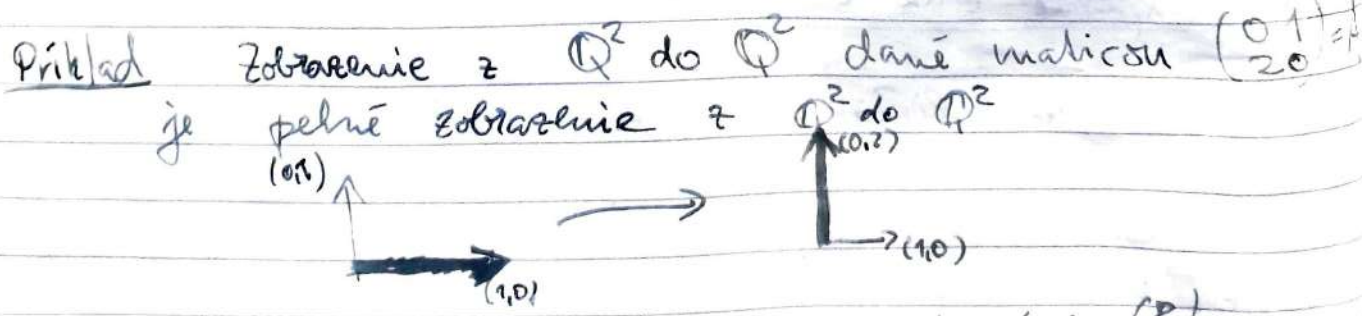 Príklad Zobrazenie z ℚ² do ℚ² dané maticou (0 1
2 0)
je pekné zobrazenie z ℚ² do ℚ²
(0,1) (0,2)
(1,0) (1,0)